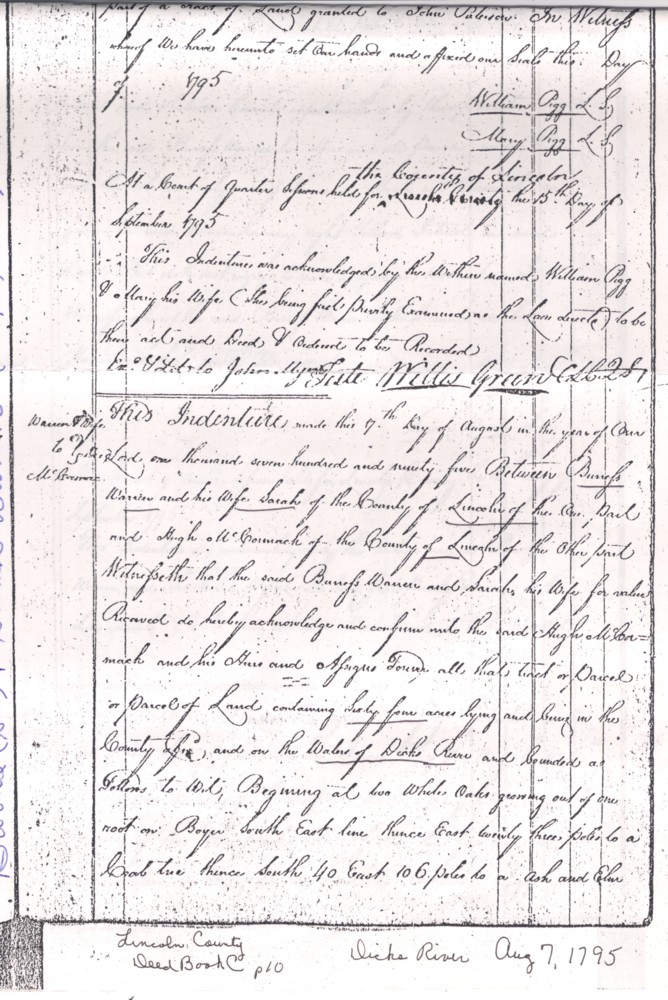 part of a tract of Land granted to John Paterson. In Witness
whereof We have hereunto set Our hands and affixed our Seals this Day
of 1795
William Pigg L.S
Mary Pigg L.S
the County of Lincoln
At a Court of Quarter Sessions held for the 15th Day of
September 1795
This Indenture was acknowledged by the Within named William Pigg
& Mary his Wife (She being first Privily Examined as the Law directs) to be
their act and Deed & Ordered to be Recorded
Exd. & Deld. to John Teste Willis Green
This Indenture made this 7th Day of August in the year of Our
Warren & Wife
to
McCormac
Lord one thousand seven hundred and ninety five Between Burress
Warren and his Wife Sarah of the County of Lincoln of the One Part
and Hugh McCormack of the County of Lincoln of the Other part
Witnesseth that the said Burress Warren and Sarah his Wife for value
Received do hereby acknowledge and confirm unto the said Hugh McCor=
mack and his Hirs and Assigns Forever all that tract or Parcel
or Parcel of Land containing Sixty four acres lying and being in the
County afsd. and on the Wates of Dicks River and bounded as
Follows to Wit, Begining at two White Oaks growing out of one
root on Boyer South East line thence East twenty three poles to a
Crab tree thence South 40 East 106 poles to a Ash and Elm
Lincoln County
Deed Book C p10
Dicks River Aug 7, 1795